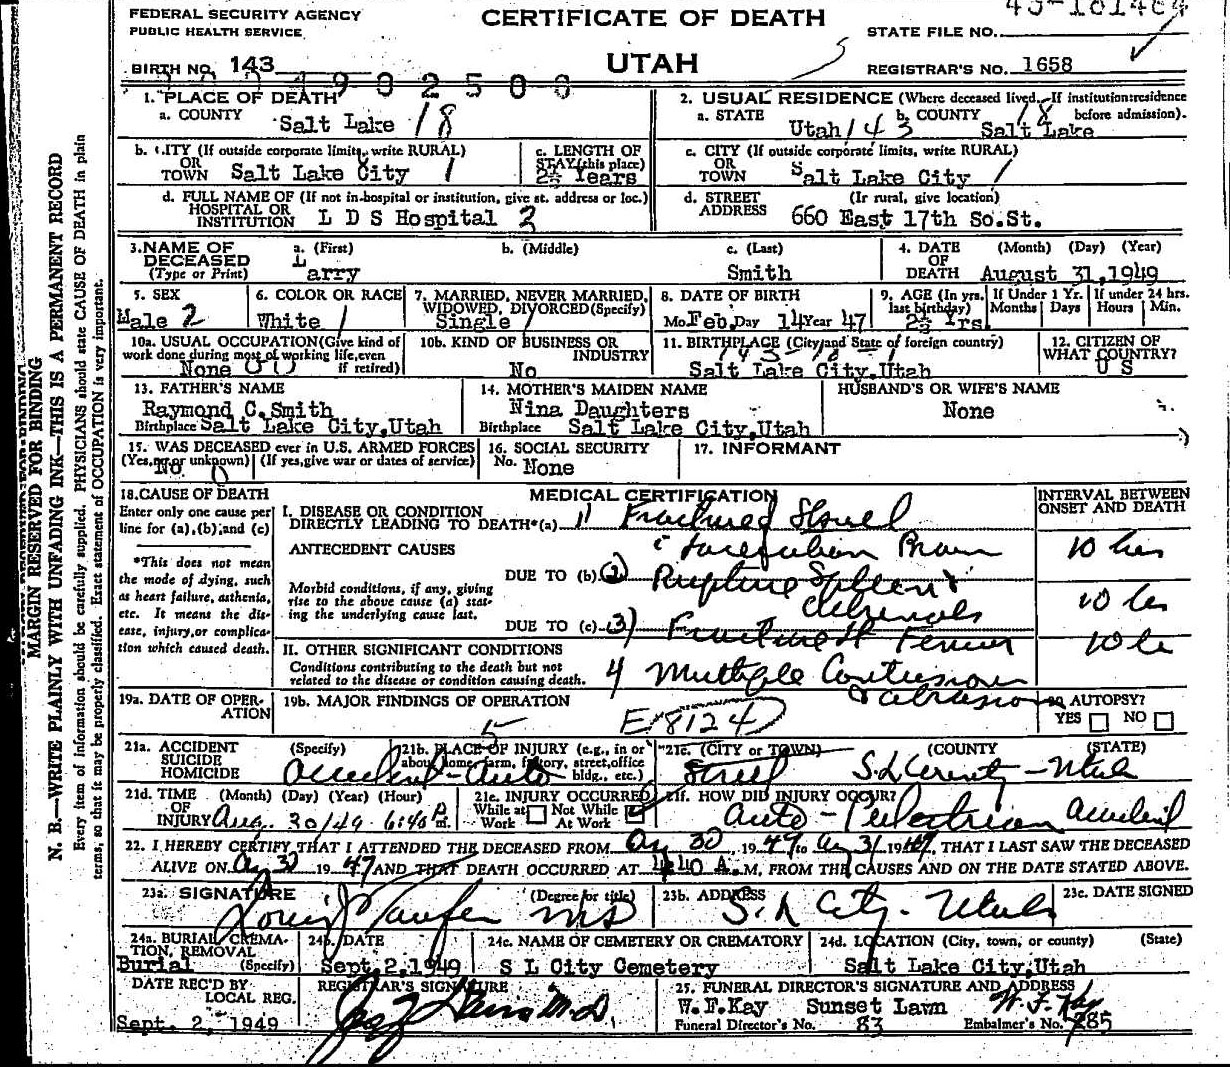 FEDERAL SECURITY AGENCY
PUBLIC HEALTH SERVICE
CERTIFICATE OF DEATH
UTAH
STATE FILE NO.
BIRTH NO. 143
REGISTRAR'S NO. 1658
1. PLACE OF DEATH
a. COUNTY Salt Lake 18
2. USUAL RESIDENCE (Where deceased lived. If institution: residence before admission).
a. STATE Utah 143 b. COUNTY 18 Salt Lake
b. CITY (If outside corporate limits, write RURAL)
OR TOWN Salt Lake City 1
c. LENGTH OF STAY (this place)
2½ Years
c. CITY (If outside corporate limits, write RURAL)
OR TOWN Salt Lake City 1
d. FULL NAME OF (If not in hospital or institution, give st. address or loc.)
HOSPITAL OR INSTITUTION L D S Hospital 2
d. STREET ADDRESS (If rural, give location)
660 East 17th So.St.
3. NAME OF DECEASED (Type or Print)
a. (First) Larry
b. (Middle)
c. (Last) Smith
4. DATE OF DEATH (Month) (Day) (Year)
August 31,1949
5. SEX
Male 2
6. COLOR OR RACE
White 1
7. MARRIED, NEVER MARRIED, WIDOWED, DIVORCED (Specify)
Single 1
8. DATE OF BIRTH
Mo Feb. Day 14 Year 47
9. AGE (In yrs. last birthday)
2½ Yrs.
If Under 1 Yr. Months Days
If under 24 hrs. Hours Min.
10a. USUAL OCCUPATION (Give kind of work done during most of working life, even if retired)
None
10b. KIND OF BUSINESS OR INDUSTRY
No
11. BIRTHPLACE (City and State of foreign country)
143-18-1
Salt Lake City,Utah
12. CITIZEN OF WHAT COUNTRY?
U S
13. FATHER'S NAME
Raymond C.Smith
Birthplace Salt Lake City,Utah
14. MOTHER'S MAIDEN NAME
Nina Daughters
Birthplace Salt Lake City,Utah
HUSBAND'S OR WIFE'S NAME
None
15. WAS DECEASED ever in U.S. ARMED FORCES
(Yes, no or unknown) (If yes, give war or dates of service)
No 0
16. SOCIAL SECURITY
No. None
17. INFORMANT
18. CAUSE OF DEATH
Enter only one cause per line for (a), (b), and (c)
*This does not mean the mode of dying, such as heart failure, asthenia, etc. It means the disease, injury, or complication which caused death.
MEDICAL CERTIFICATION
INTERVAL BETWEEN ONSET AND DEATH
I. DISEASE OR CONDITION
DIRECTLY LEADING TO DEATH*(a) 1) Fractured Skull
ANTECEDENT CAUSES
Brain
10 hrs
Morbid conditions, if any, giving rise to the above cause (a) stating the underlying cause last.
DUE TO (b) (2) Rupture Spleen & adrenals
10 hrs
DUE TO (c) (3) Fracture Femur
10 hrs
II. OTHER SIGNIFICANT CONDITIONS
Conditions contributing to the death but not related to the disease or condition causing death.
4 Multiple Contusions
& abrasions
19a. DATE OF OPERATION
19b. MAJOR FINDINGS OF OPERATION
E8124
20 AUTOPSY?
YES NO
21a. ACCIDENT SUICIDE HOMICIDE (Specify)
accident-auto
21b. PLACE OF INJURY (e.g., in or about home, farm, factory, street, office bldg., etc.)
5
Street
21c. (CITY or TOWN) (COUNTY (STATE)
S L County - Utah
21d. TIME OF INJURY (Month) (Day) (Year) (Hour)
Aug. 30/49 6:40 P m.
21e. INJURY OCCURRED
While at Work Not While At Work
21f. HOW DID INJURY OCCUR?
Auto-Pedestrian accident
22. I HEREBY CERTIFY THAT I ATTENDED THE DECEASED FROM Aug 30 1949 to Aug 31 1949, THAT I LAST SAW THE DECEASED
ALIVE ON Aug 30 1947 AND THAT DEATH OCCURRED AT 4:40 A.M, FROM THE CAUSES AND ON THE DATE STATED ABOVE.
23a. SIGNATURE (Degree or title)
Louis MD
23b. ADDRESS
S.L City - Utah
23c. DATE SIGNED
24a. BURIAL, CREMATION, REMOVAL (Specify)
Burial
24b. DATE
Sept.2,1949
24c. NAME OF CEMETERY OR CREMATORY
S L City Cemetery
24d. LOCATION (City, town, or county) (State)
Salt Lake City,Utah
DATE REC'D BY LOCAL REG.
Sept. 2, 1949
REGISTRAR'S SIGNATURE
M.D.
25. FUNERAL DIRECTOR'S SIGNATURE AND ADDRESS
W.F.Kay Sunset Lawn W. F. Kay
Funeral Director's No. 83 Embalmer's No. 285
MARGIN RESERVED FOR BINDING
N. B.—WRITE PLAINLY WITH UNFADING INK—THIS IS A PERMANENT RECORD
Every item of information should be carefully supplied. PHYSICIANS should state CAUSE OF DEATH in plain
terms, so that it may be properly classified. Exact statement of OCCUPATION is very important.